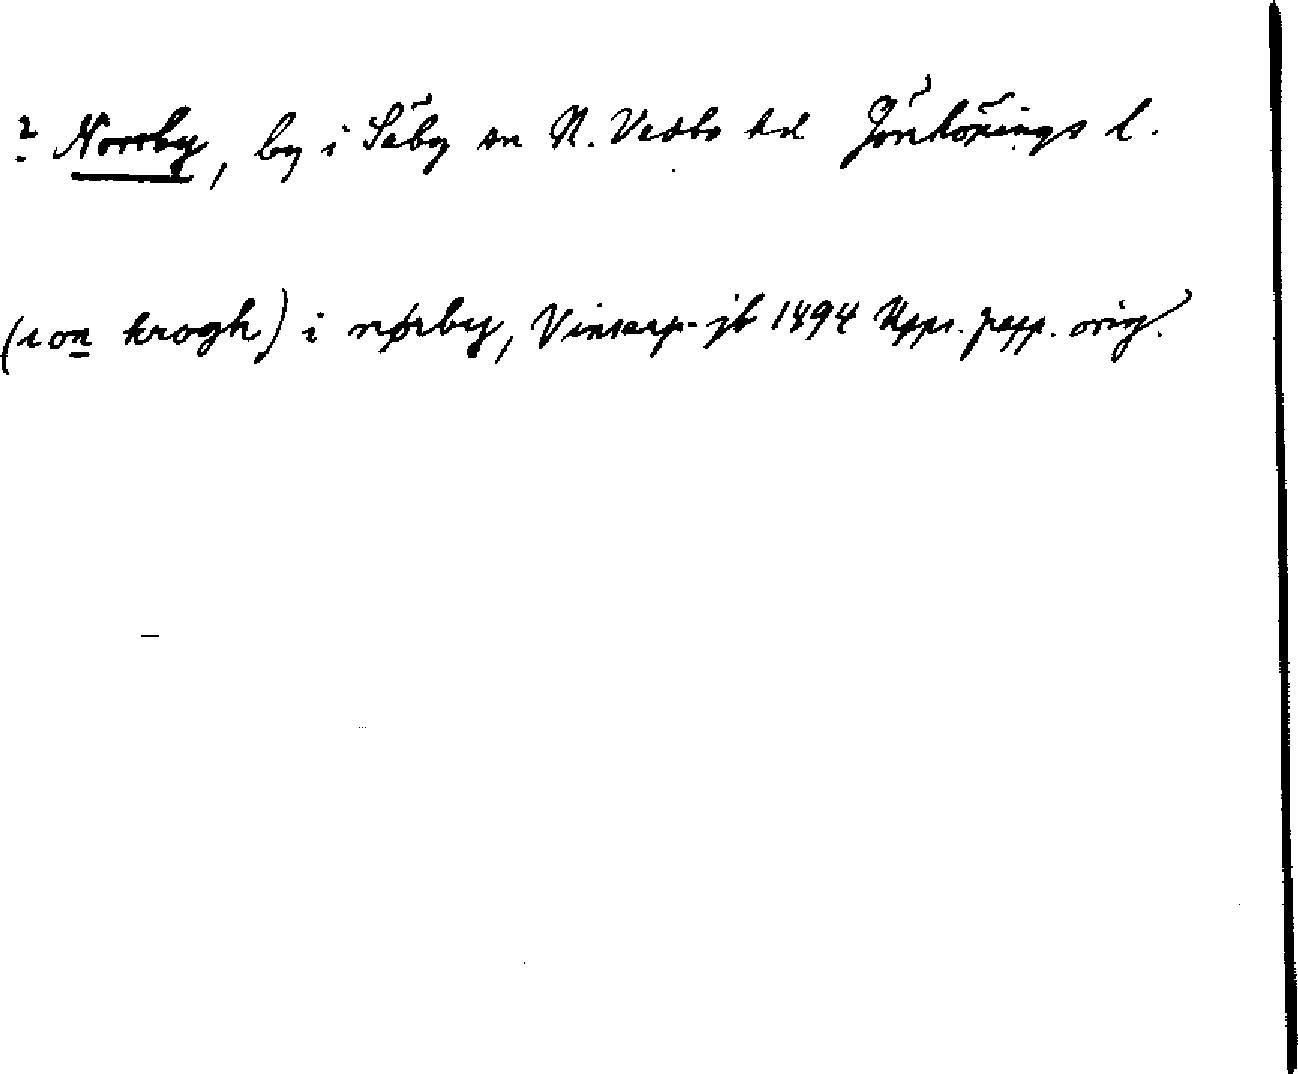 ? Norrby, by i Säby sn N. Vedbo hd Jönköpings l.
(ion krogh) i nørby, Vinstorp-jb 1494 Upps. papp. orig.